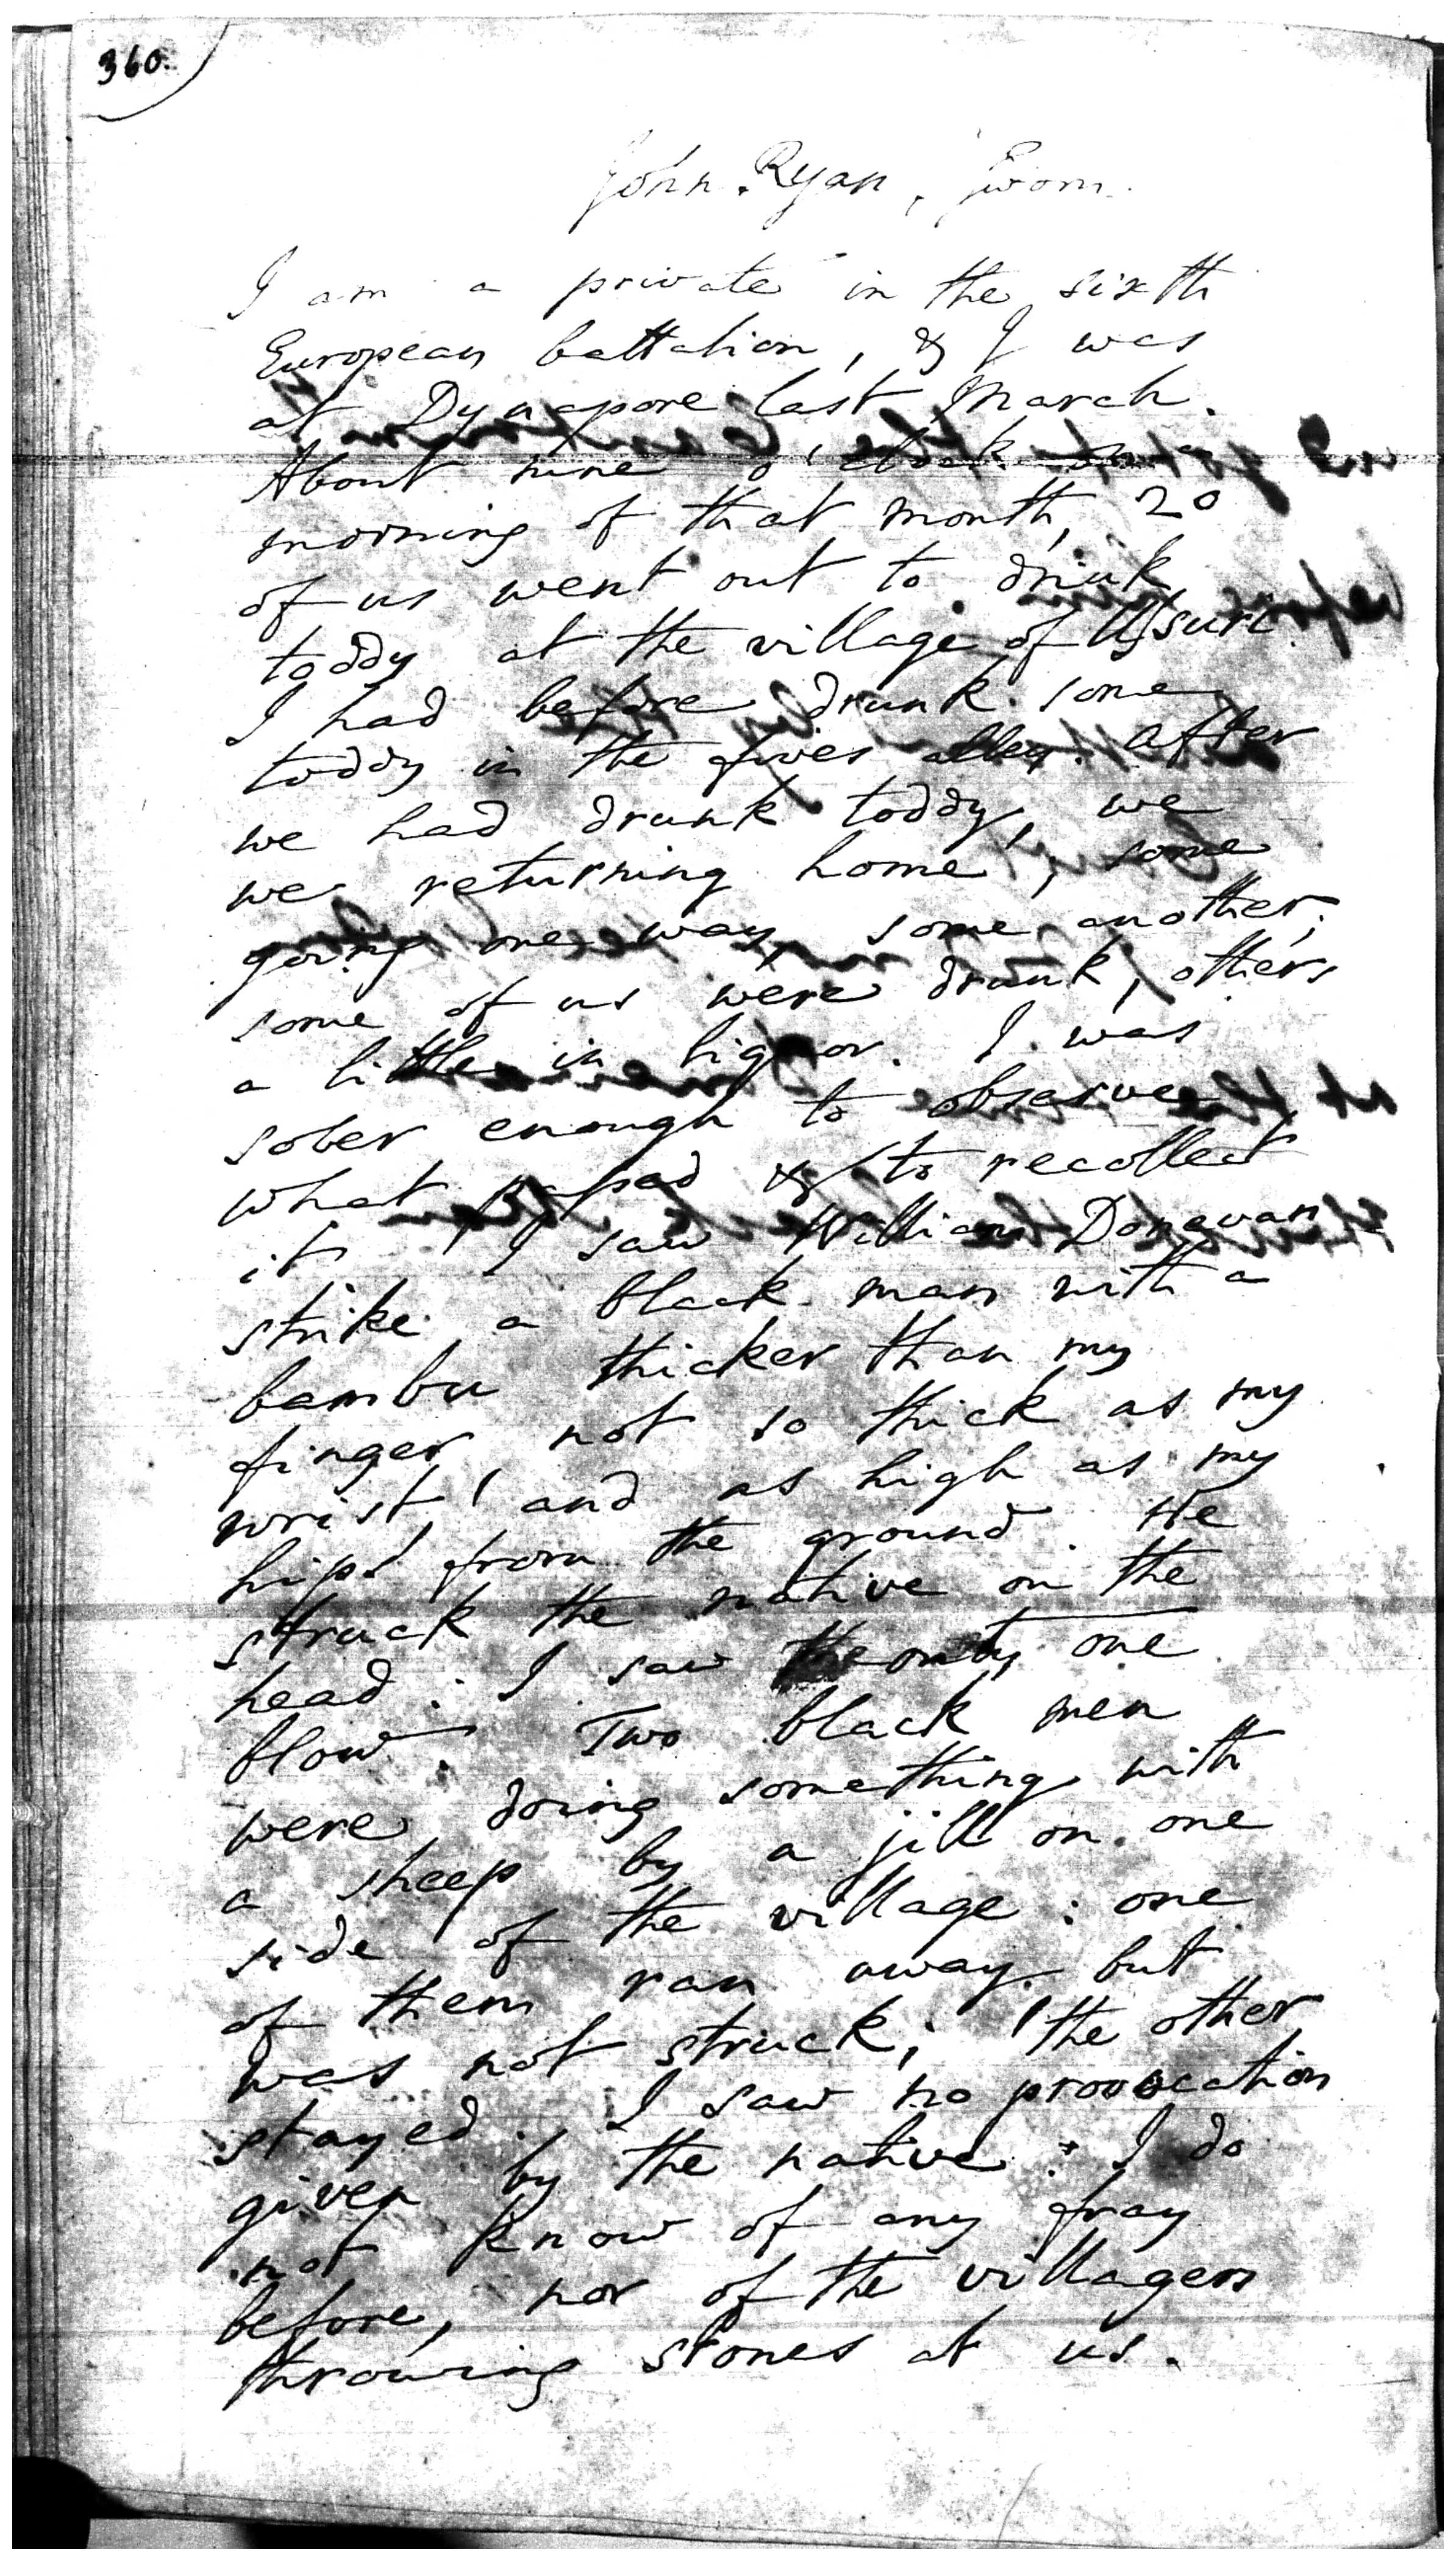 360.
John Ryan, Sworn.
I am a private in the sixth
European battalion, & I was
at Dynapore last March.
About nine o'clock one
morning of that month, 20
of us went out to drink
toddy at the village of Usuri.
I had before drunk some
toddy in the fives alley. After
we had drunk toddy, we
we returning home, some
going one way, some another;
some of us were drunk, others
a little in liquor. I was
sober enough to observe
what passed & to recollect
it. I saw William Donavan
strike a black man with a
bambu thicker than my
finger, not so thick as my
wrist, and as high as my
hips from the ground. He
struck the native on the
head: I saw only one
blow. Two black men
were doing something with
a sheep by a jill on one
side of the village: one
of them ran away but
was not struck; the other
stayed. I saw no provocation
given by the native: I do
not know of any fray
before, nor of the villagers
throwing stones at us.